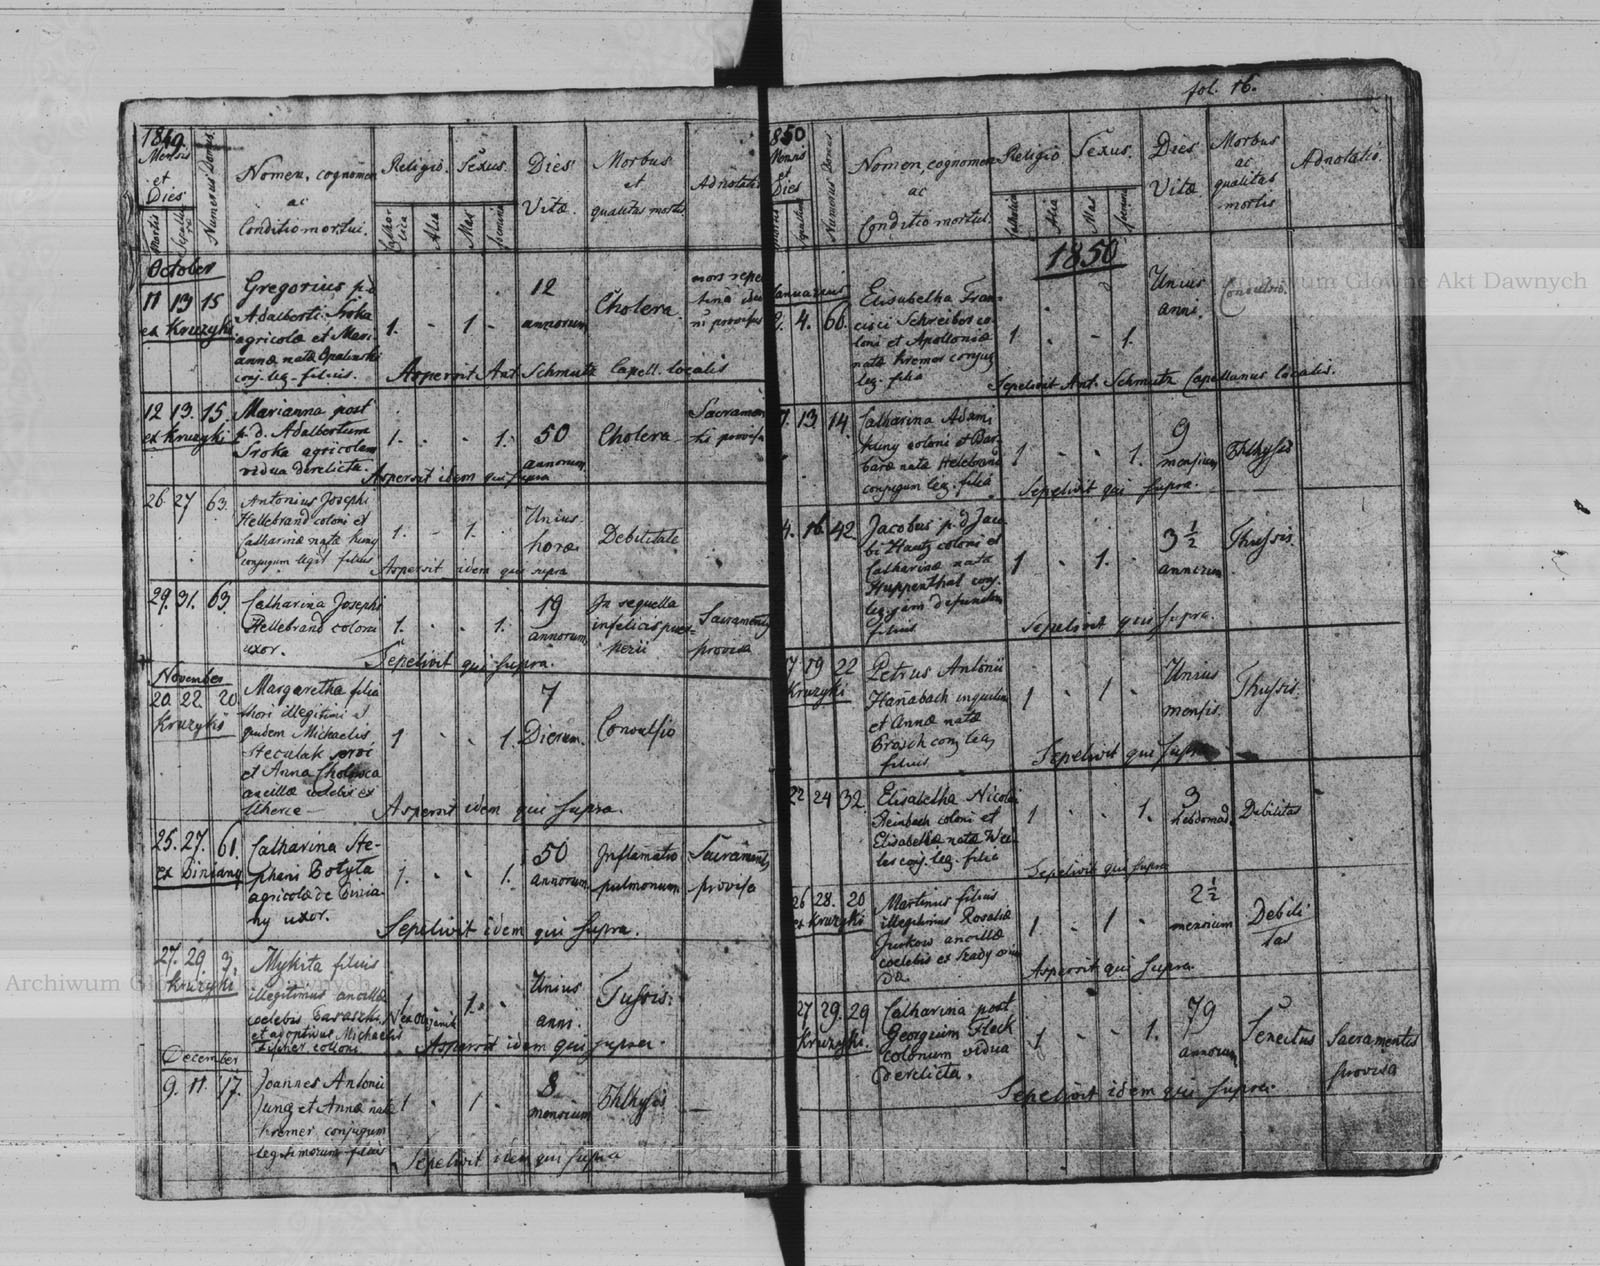 fol. 16.
1849
Mensis
et
Dies
Mortis
Sepultu
rae
Numerus Domus
Nomen, cognomen
ac
Conditio mortui.
Religio.
Catho
lica
Alia
Sexus.
Mas
femina
Dies
Vitae.
Morbus
et
qualitas mortis
Adnotatio
October
11 13 15
ex Kruzyki
Gregorius p.d.
Adalberti Sroka
agricolae et Mari
annae natae Opalinski
conj. leg. filius.
1. - 1 -
12
annorum
Cholera
mors repe
tina
provisus
Aspersit Ant. Schmutz Capell. localis
12 13. 15.
ex Kruzyki
Marianna post
p. d. Adalbertum
Sroka agricolam
vidua derelicta.
1. . . 1.
50
annorum
Cholera
Sacramen
tis provisa
Aspersit idem qui supra
26 27 63.
Antonius Josephi
Hellebrand coloni et
Catharinae natae Kuny
conjugum legit filius
1. - 1. .
Unius
horae
Debilitate
Aspersit idem qui supra
29. 31. 63.
Catharina Josephi
Hellebrand coloni
uxor.
1. . . 1.
19
annorum
In sequella
infelicis puer-
perii
Sacramentis
provisa
Sepelivit qui supra.
November
20. 22. 20
Kruzyki
Margaretha filia
thori illegitimi et
quidem Michaelis
Steculak
et Anna
ancillae celebis ex
Uherce
1 . . 1.
7
Dierum.
Convulsio
Aspersit idem qui supra.
25. 27. 61.
ex Biniany
Catharina Ste-
phani Botyta
agricolae de Binia
ny uxor.
1. . . 1.
50
annorum
Inflamatio
pulmonum
Sacramentis
provisa
Sepelivit idem qui supra.
27. 29. 3.
Kruzyki.
Mykita filius
illegitimus ancillae
coelebis Paraszki
et adoptivus Michaelis
Fischer colloni
1 . 1. .
Unius
anni.
Tussis.
Aspersit idem qui supra.
December
9. 11. 17.
Joannes Antonii
Jung et Annae natae
Kremer conjugum
legitimorum filius
1 . 1 .
8
mensium
Phthysis
Sepelivit idem qui supra
1850
Mensis
et
Dies
Mortis
Sepultu
Numerus Domus
Nomen, cognomen
ac
Conditio mortui.
Religio
Catholica
Alia
Sexus.
Mas
femina
Dies
Vitae
Morbus
ac
qualitas
mortis
Adnotatio.
1850
Januarius
2. 4. 66.
Elisabetha Fran-
cisci Schreiber co-
loni et Apolloniae
natae Kremer conjug
leg. filia
1 . - 1.
Unius
anni.
Convulsio.
Sepelivit Ant. Schmutz Capellanus localis.
11. 13. 14.
Catharina Adami
Kuny coloni et Bar
barae natae Hellebrand
conjugum leg. filia
1 . . 1.
9
mensium
Phthysis
Sepelivit qui supra.
14. 16. 42.
Jacobus p. d. Jaco
bi Hautz coloni et
Catharinae natae
Huppenthal conj.
leg. jam defunctum
filius
1 . 1. .
3 1/2
annorum
Thussis.
Sepelivit qui supra.
17. 19 22
Kruzyki
Petrus Antonii
Hanabach inquilini
et Annae natae
Brosch conj leg
filius
1 . 1 .
Unius
mensis.
Thussis.
Sepelivit qui supra
22 24 32.
Elisabetha Nicolai
Reinbach coloni et
Elisabethae natae Wei-
ler conj. leg. filia
1 . . 1.
3
hebdomad.
Debilitas
Sepelivit qui supra
26 28. 20
ex Kruzyki
Martinus filius
illegitimus Rosaliae
Jurkow ancillae
coelebis ex
1 . 1 .
2 1/2
mensium
Debili
tas
Aspersit qui supra.
27 29. 29
Kruzyki.
Catharina post
Georgium Fleck
colonum vidua
derelicta.
1 . . 1.
79
annorum
Senectus
Sacramentis
provisa
Sepelivit idem qui supra.
Archiwum Główne Akt Dawnych
Archiwum Główne Akt Dawnych